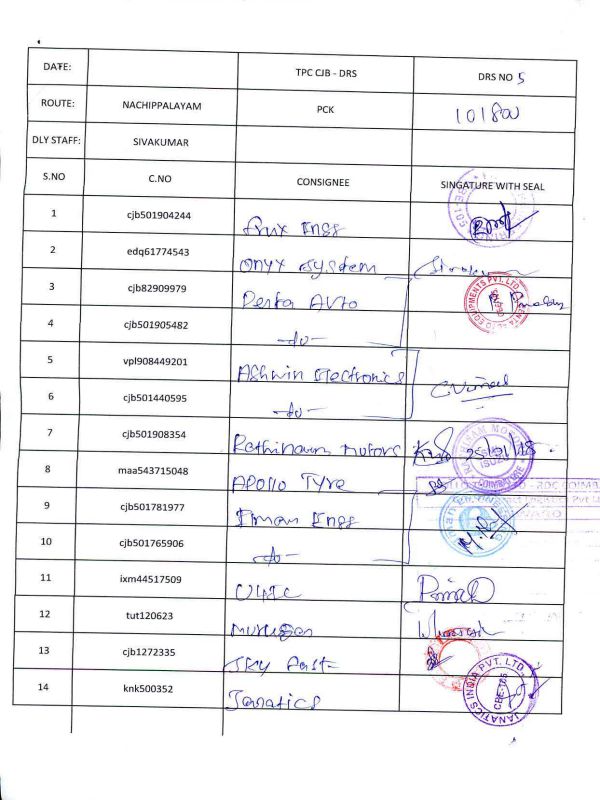 DATE: TPC CJB - DRS DRS NO 5
ROUTE: NACHIPPALAYAM PCK 101800
DLY STAFF: SIVAKUMAR
S.NO C.NO CONSIGNEE SINGATURE WITH SEAL
1 cjb501904244 Engs
2 edq61774543 Onyx System
3 cjb82909979 Penta Auto
4 cjb501905482 -do-
5 vpl908449201 Ashwin Electronics
6 cjb501440595 -do-
7 cjb501908354 Rathinam Motors
8 maa543715048 APOLLO Tyre
9 cjb501781977 Engs
10 cjb501765906 -do-
11 ixm44517509
12 tut120623 Murugan
13 cjb1272335 Sky Fast
14 knk500352 Janatics
JANATICS INDIA PVT. LTD.